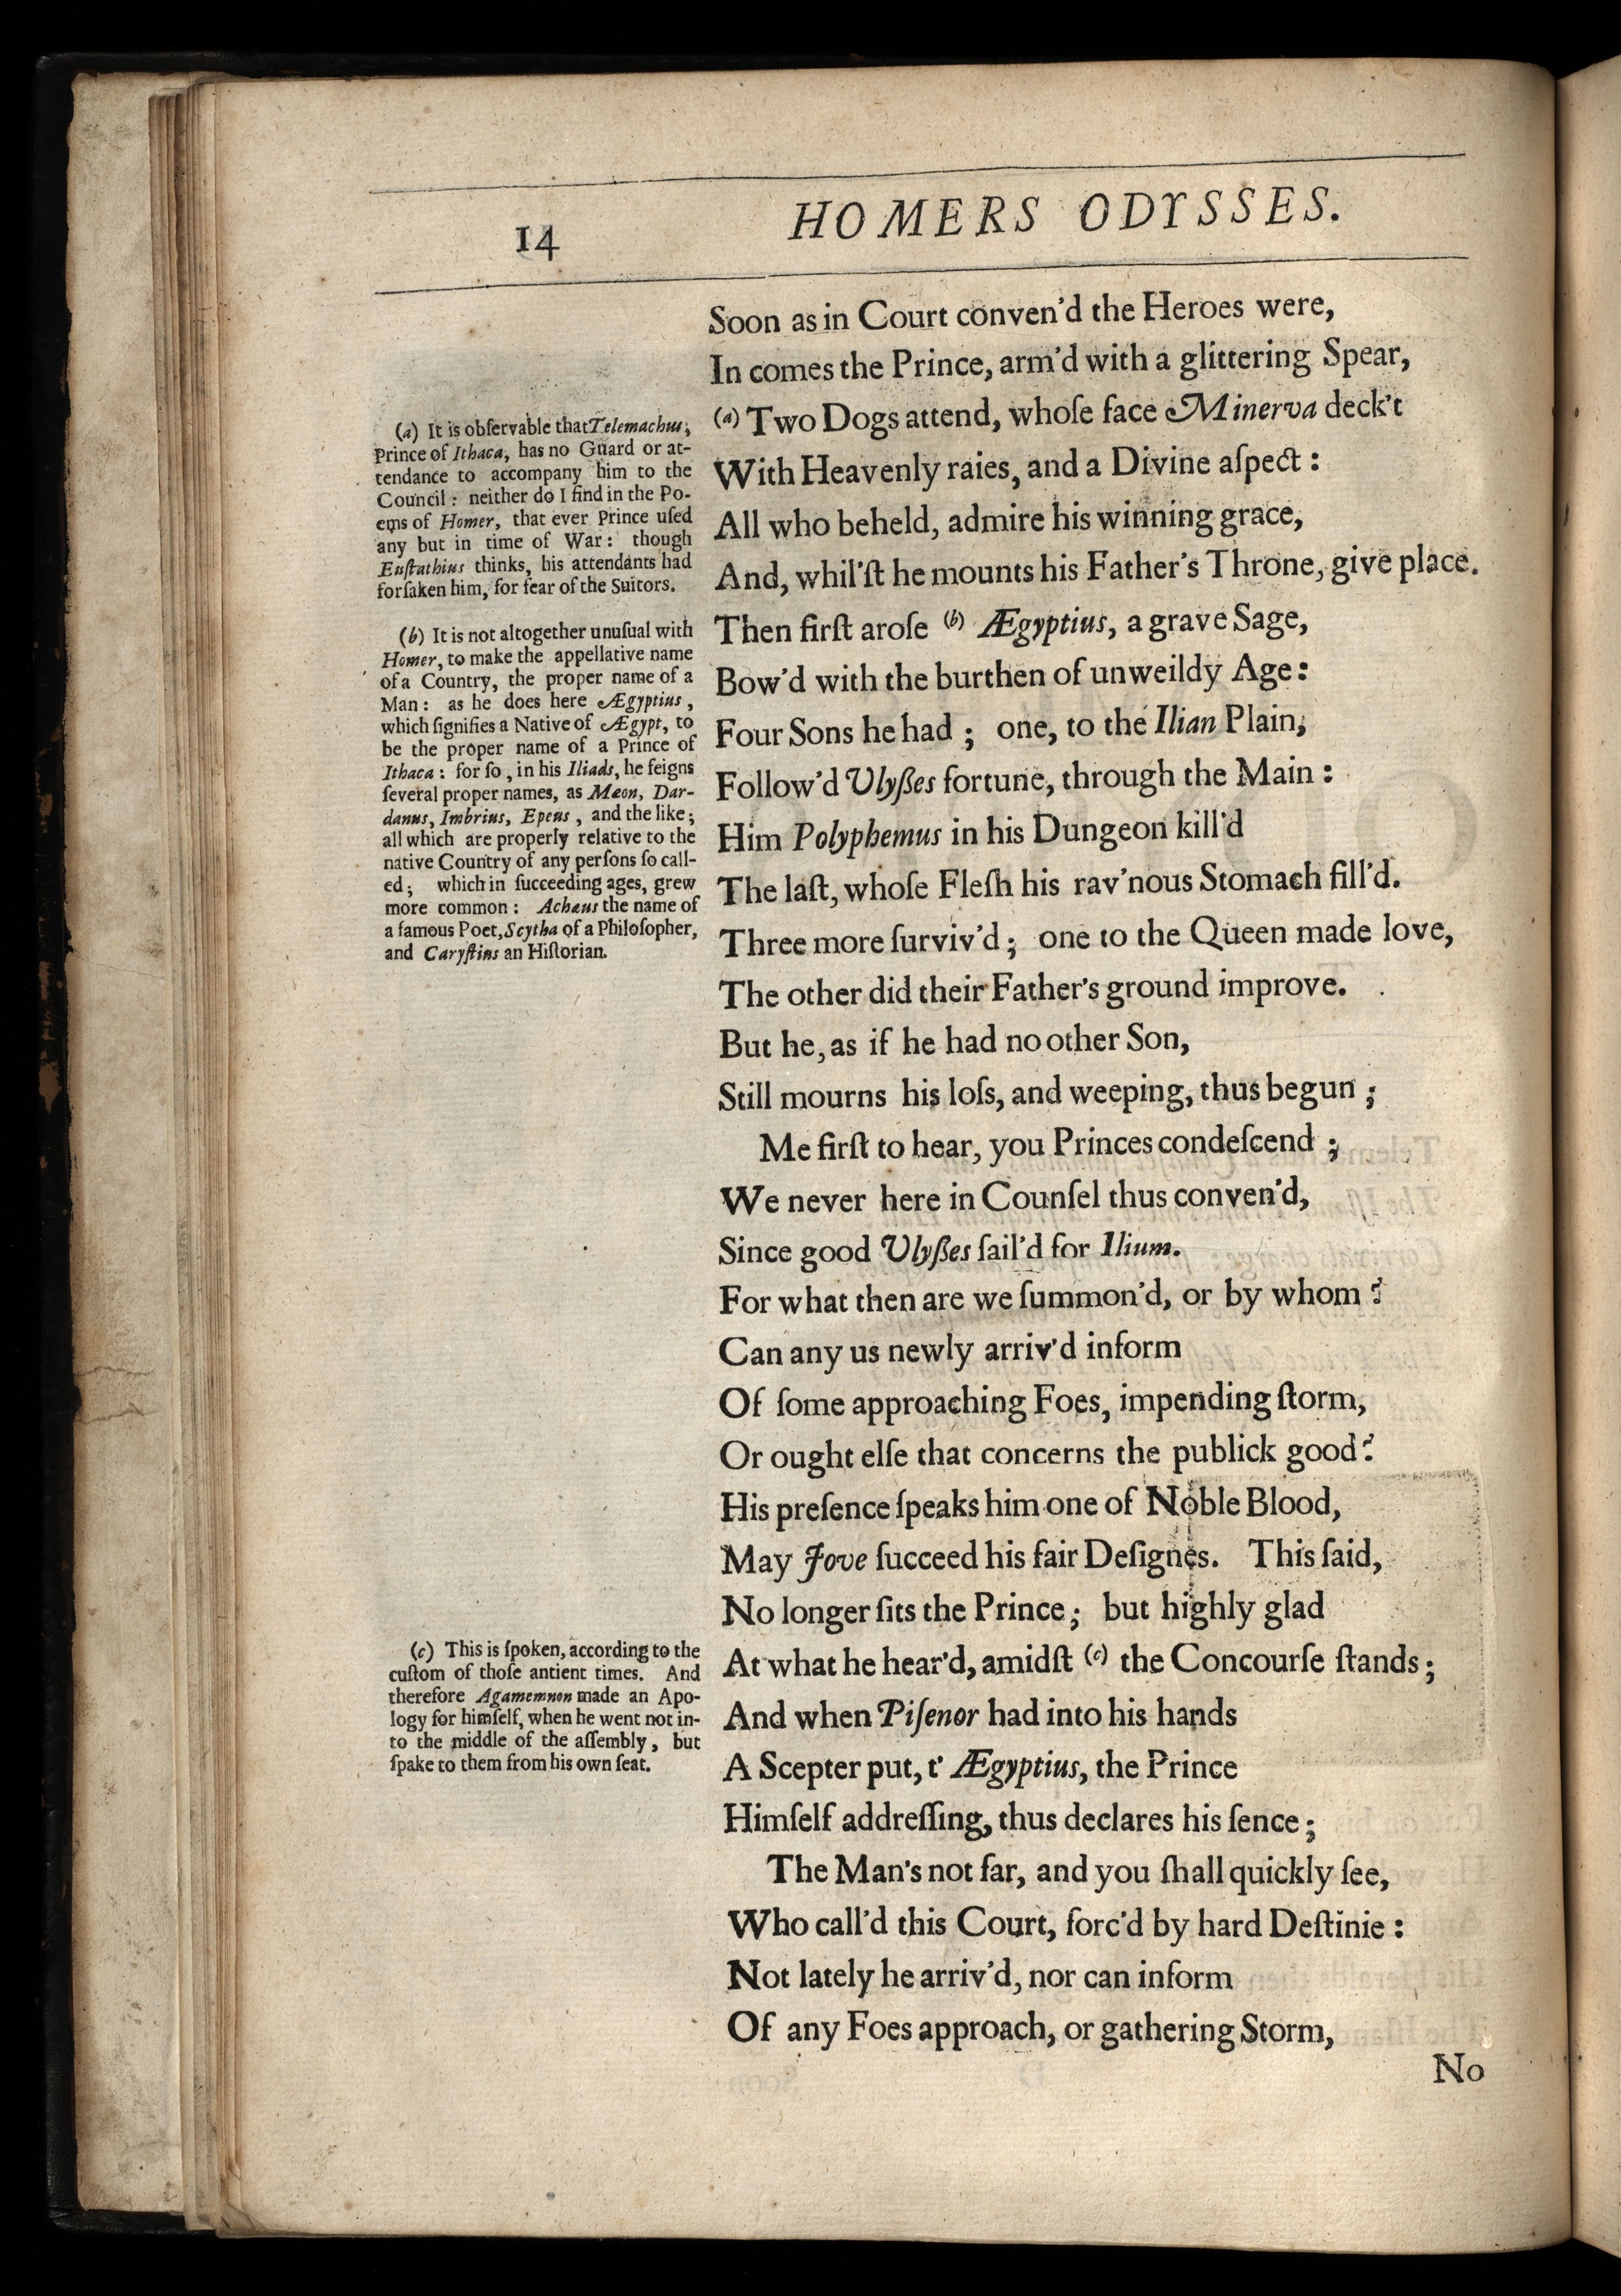 14
HOMERS ODYSSES.
Soon as in Court conven'd the Heroes were,
In comes the Prince, arm'd with a glittering Spear,
(a) Two Dogs attend, whoſe face Minerva deck't
With Heavenly raies, and a Divine aſpect :
All who beheld, admire his winning grace,
And, whil'ſt he mounts his Father's Throne, give place.
Then firſt aroſe (b) Ægyptius, a grave Sage,
Bow'd with the burthen of unweildy Age :
Four Sons he had ; one, to the Ilian Plain,
Follow'd Ulyßes fortune, through the Main :
Him Polyphemus in his Dungeon kill'd
The laſt, whoſe Fleſh his rav'nous Stomach fill'd.
Three more ſurviv'd ; one to the Queen made love,
The other did their Father's ground improve.
But he, as if he had no other Son,
Still mourns his loſs, and weeping, thus begun ;
Me firſt to hear, you Princes condeſcend ;
We never here in Counſel thus conven'd,
Since good Ulyßes ſail'd for Ilium.
For what then are we ſummon'd, or by whom ?
Can any us newly arriv'd inform
Of ſome approaching Foes, impending ſtorm,
Or ought elſe that concerns the publick good?
His preſence ſpeaks him one of Noble Blood,
May Jove ſucceed his fair Deſignes. This ſaid,
No longer ſits the Prince ; but highly glad
At what he hear'd, amidſt (c) the Concourſe ſtands ;
And when Piſenor had into his hands
A Scepter put, t' Ægyptius, the Prince
Himſelf addreſſing, thus declares his ſence ;
The Man's not far, and you ſhall quickly ſee,
Who call'd this Court, forc'd by hard Deſtinie :
Not lately he arriv'd, nor can inform
Of any Foes approach, or gathering Storm,
No
(a) It is obſervable that Telemachus,
Prince of Ithaca, has no Guard or at-
tendance to accompany him to the
Council : neither do I find in the Po-
ems of Homer, that ever Prince uſed
any but in time of War : though
Euſtathius thinks, his attendants had
forſaken him, for fear of the Suitors.
(b) It is not altogether unuſual with
Homer, to make the appellative name
of a Country, the proper name of a
Man : as he does here Ægyptius,
which ſignifies a Native of Ægypt, to
be the proper name of a Prince of
Ithaca : for ſo, in his Iliads, he feigns
ſeveral proper names, as Mæon, Dar-
danus, Imbrius, Epeus, and the like ;
all which are properly relative to the
native Country of any perſons ſo call-
ed ; which in ſucceeding ages, grew
more common : Achæus the name of
a famous Poet, Scytha of a Philoſopher,
and Caryſtius an Hiſtorian.
(c) This is ſpoken, according to the
cuſtom of thoſe antient times. And
therefore Agamemnon made an Apo-
logy for himſelf, when he went not in-
to the middle of the aſſembly, but
ſpake to them from his own ſeat.